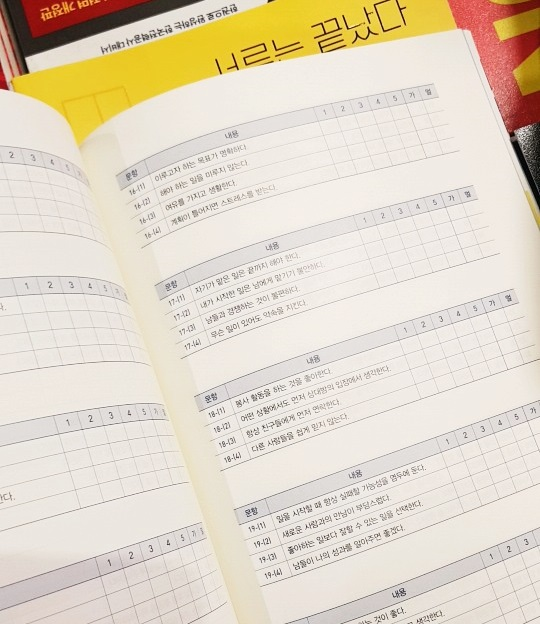 한권으로 완성하는 한국전력공사 대비서
문항 내용 1 2 3 4 5 가 멀
16-(1) 이루고자 하는 목표가 명확하다.
16-(2) 해야 하는 일을 미루지 않는다.
16-(3) 여유를 가지고 생활한다.
16-(4) 계획이 틀어지면 스트레스를 받는다.
문항 내용 1 2 3 4 5 가 멀
17-(1) 자기가 맡은 일은 끝까지 해야 한다.
17-(2) 내가 시작한 일은 남에게 맡기기 불안하다.
17-(3) 남들과 경쟁하는 것이 불편하다.
17-(4) 무슨 일이 있어도 약속을 지킨다.
문항 내용 1 2 3 4 5 가 멀
18-(1) 봉사 활동을 하는 것을 좋아한다.
18-(2) 어떤 상황에서도 먼저 상대방의 입장에서 생각한다.
18-(3) 항상 친구들에게 먼저 연락한다.
18-(4) 다른 사람들을 쉽게 믿지 않는다.
문항 내용 1 2 3 4 5 가
19-(1) 일을 시작할 때 항상 실패할 가능성을 염두에 둔다.
19-(2) 새로운 사람과의 만남이 부담스럽다.
19-(3) 좋아하는 일보다 잘할 수 있는 일을 선택한다.
19-(4) 남들이 나의 성과를 알아주면 좋겠다.
내용 1 2 3
것이 좋다.
생각한다.
2 3 4 5 가 멀
1 2 3 4 5 가 멀
다.
1 2 3 4 5 가 멀
한다.
1 2 3 4 5 가